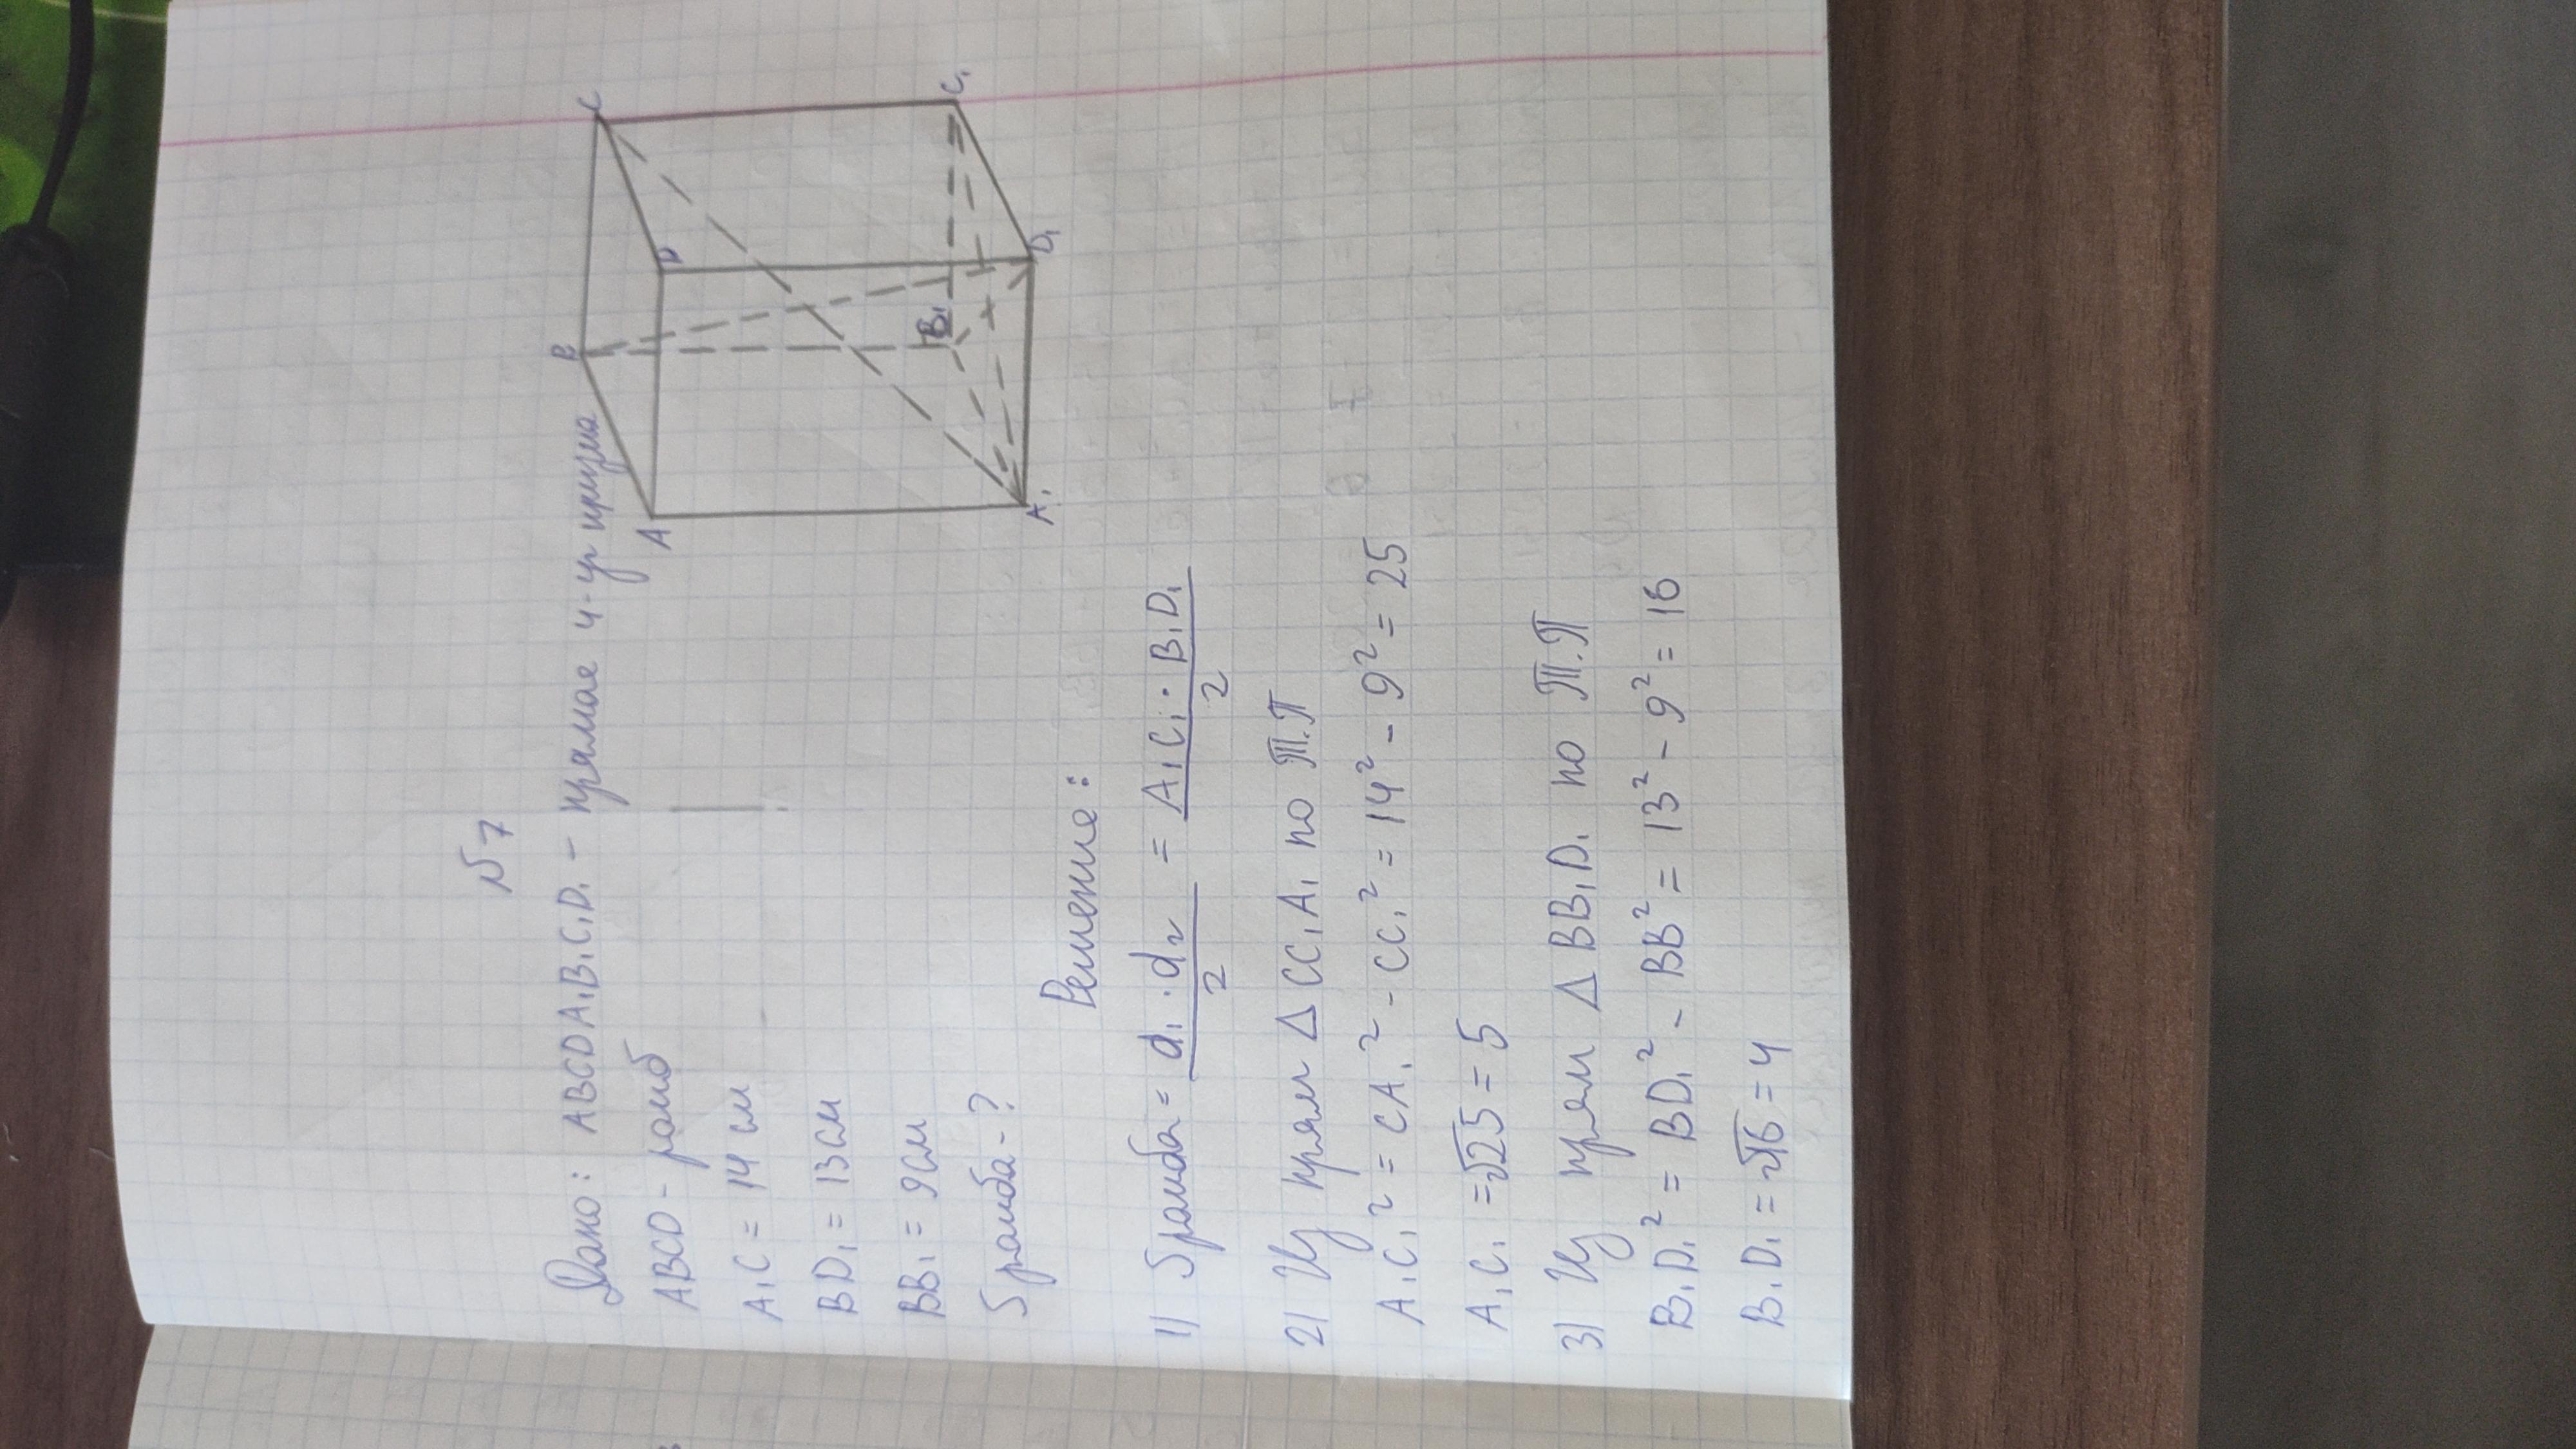 №7
Дано: ABCDA₁B₁C₁D₁ - прямая 4-уг призма
ABCD - ромб
A₁C = 14 см
BD₁ = 13 см
BB₁ = 9 см
Sромба - ?
A
B
C
D
A₁
B₁
C₁
D₁
Решение:
1) Sромба = d₁ · d₂ / 2 = A₁C₁ · B₁D₁ / 2
2) Из прям △ CC₁A₁ по Т.П
A₁C₁² = CA₁² - CC₁² = 14² - 9² = 25
A₁C₁ = √25 = 5
3) Из прям △ BB₁D₁ по Т.П
B₁D₁² = BD₁² - BB² = 13² - 9² = 16
B₁D₁ = √16 = 4